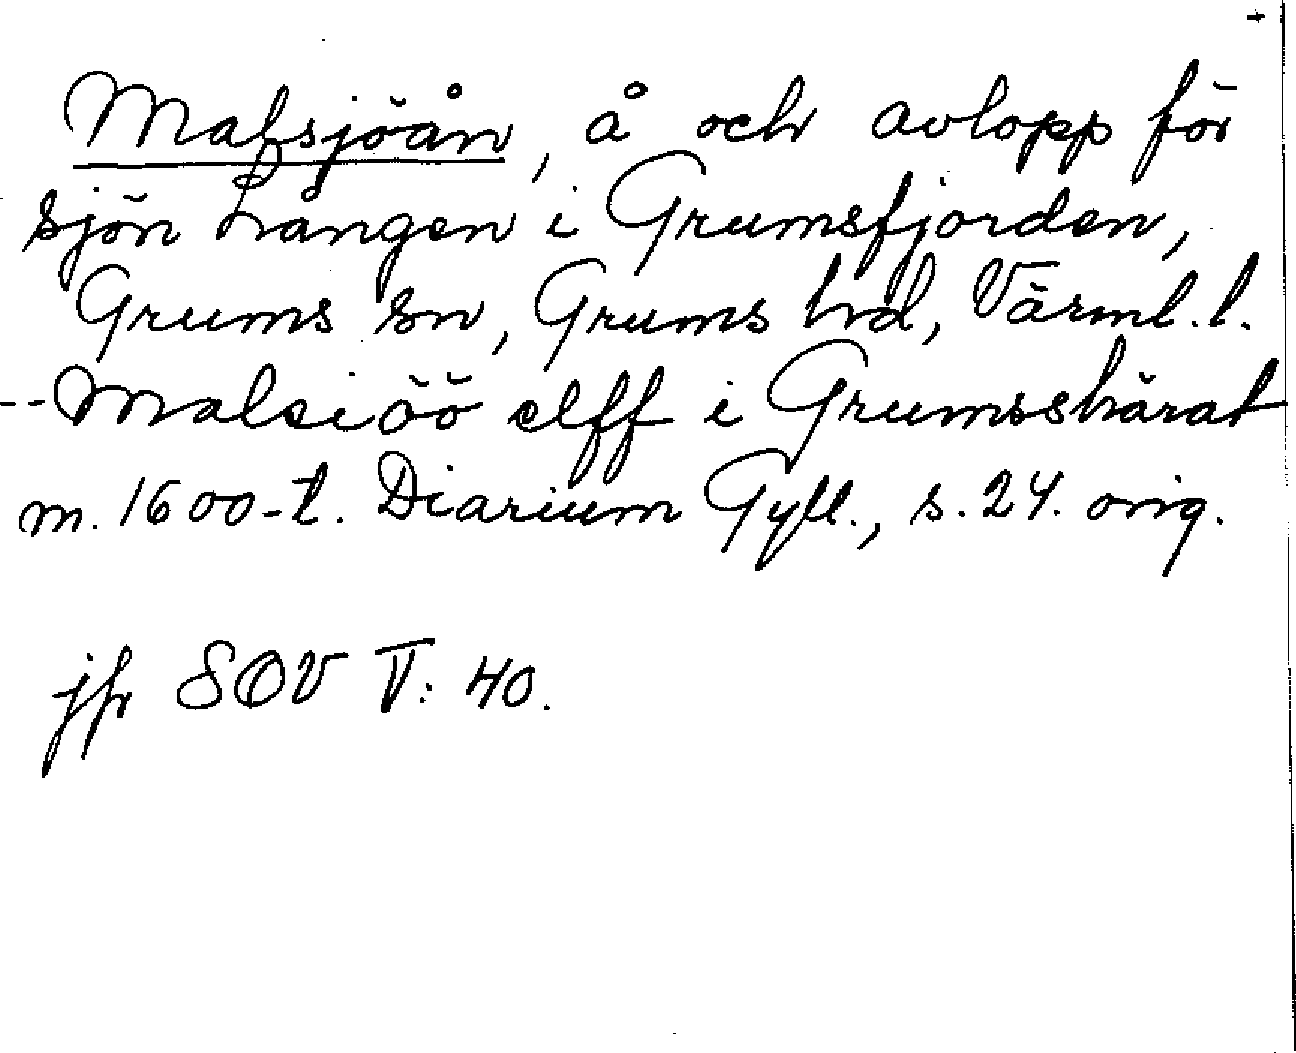 +
Malsjöån, å och avlopp för
sjön Lången i Grumsfjorden,
Grums sn, Grums hd, Värml. l.
-- Malsiöö elff i Grumsshärat
m. 1600-t. Diarium Gyll., s. 24. orig.
jfr SOV V: 40.